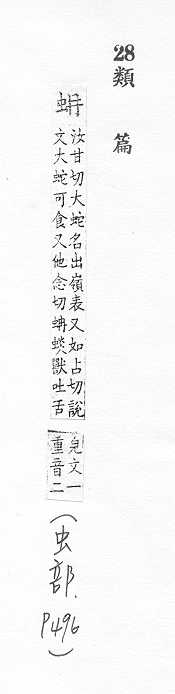 28類篇
蚦
汝甘切大蛇名出嶺表又如占切說
文大蛇可食又他念切蚦㷸獸吐舌
皃文一
重音二
(虫部.
P496)